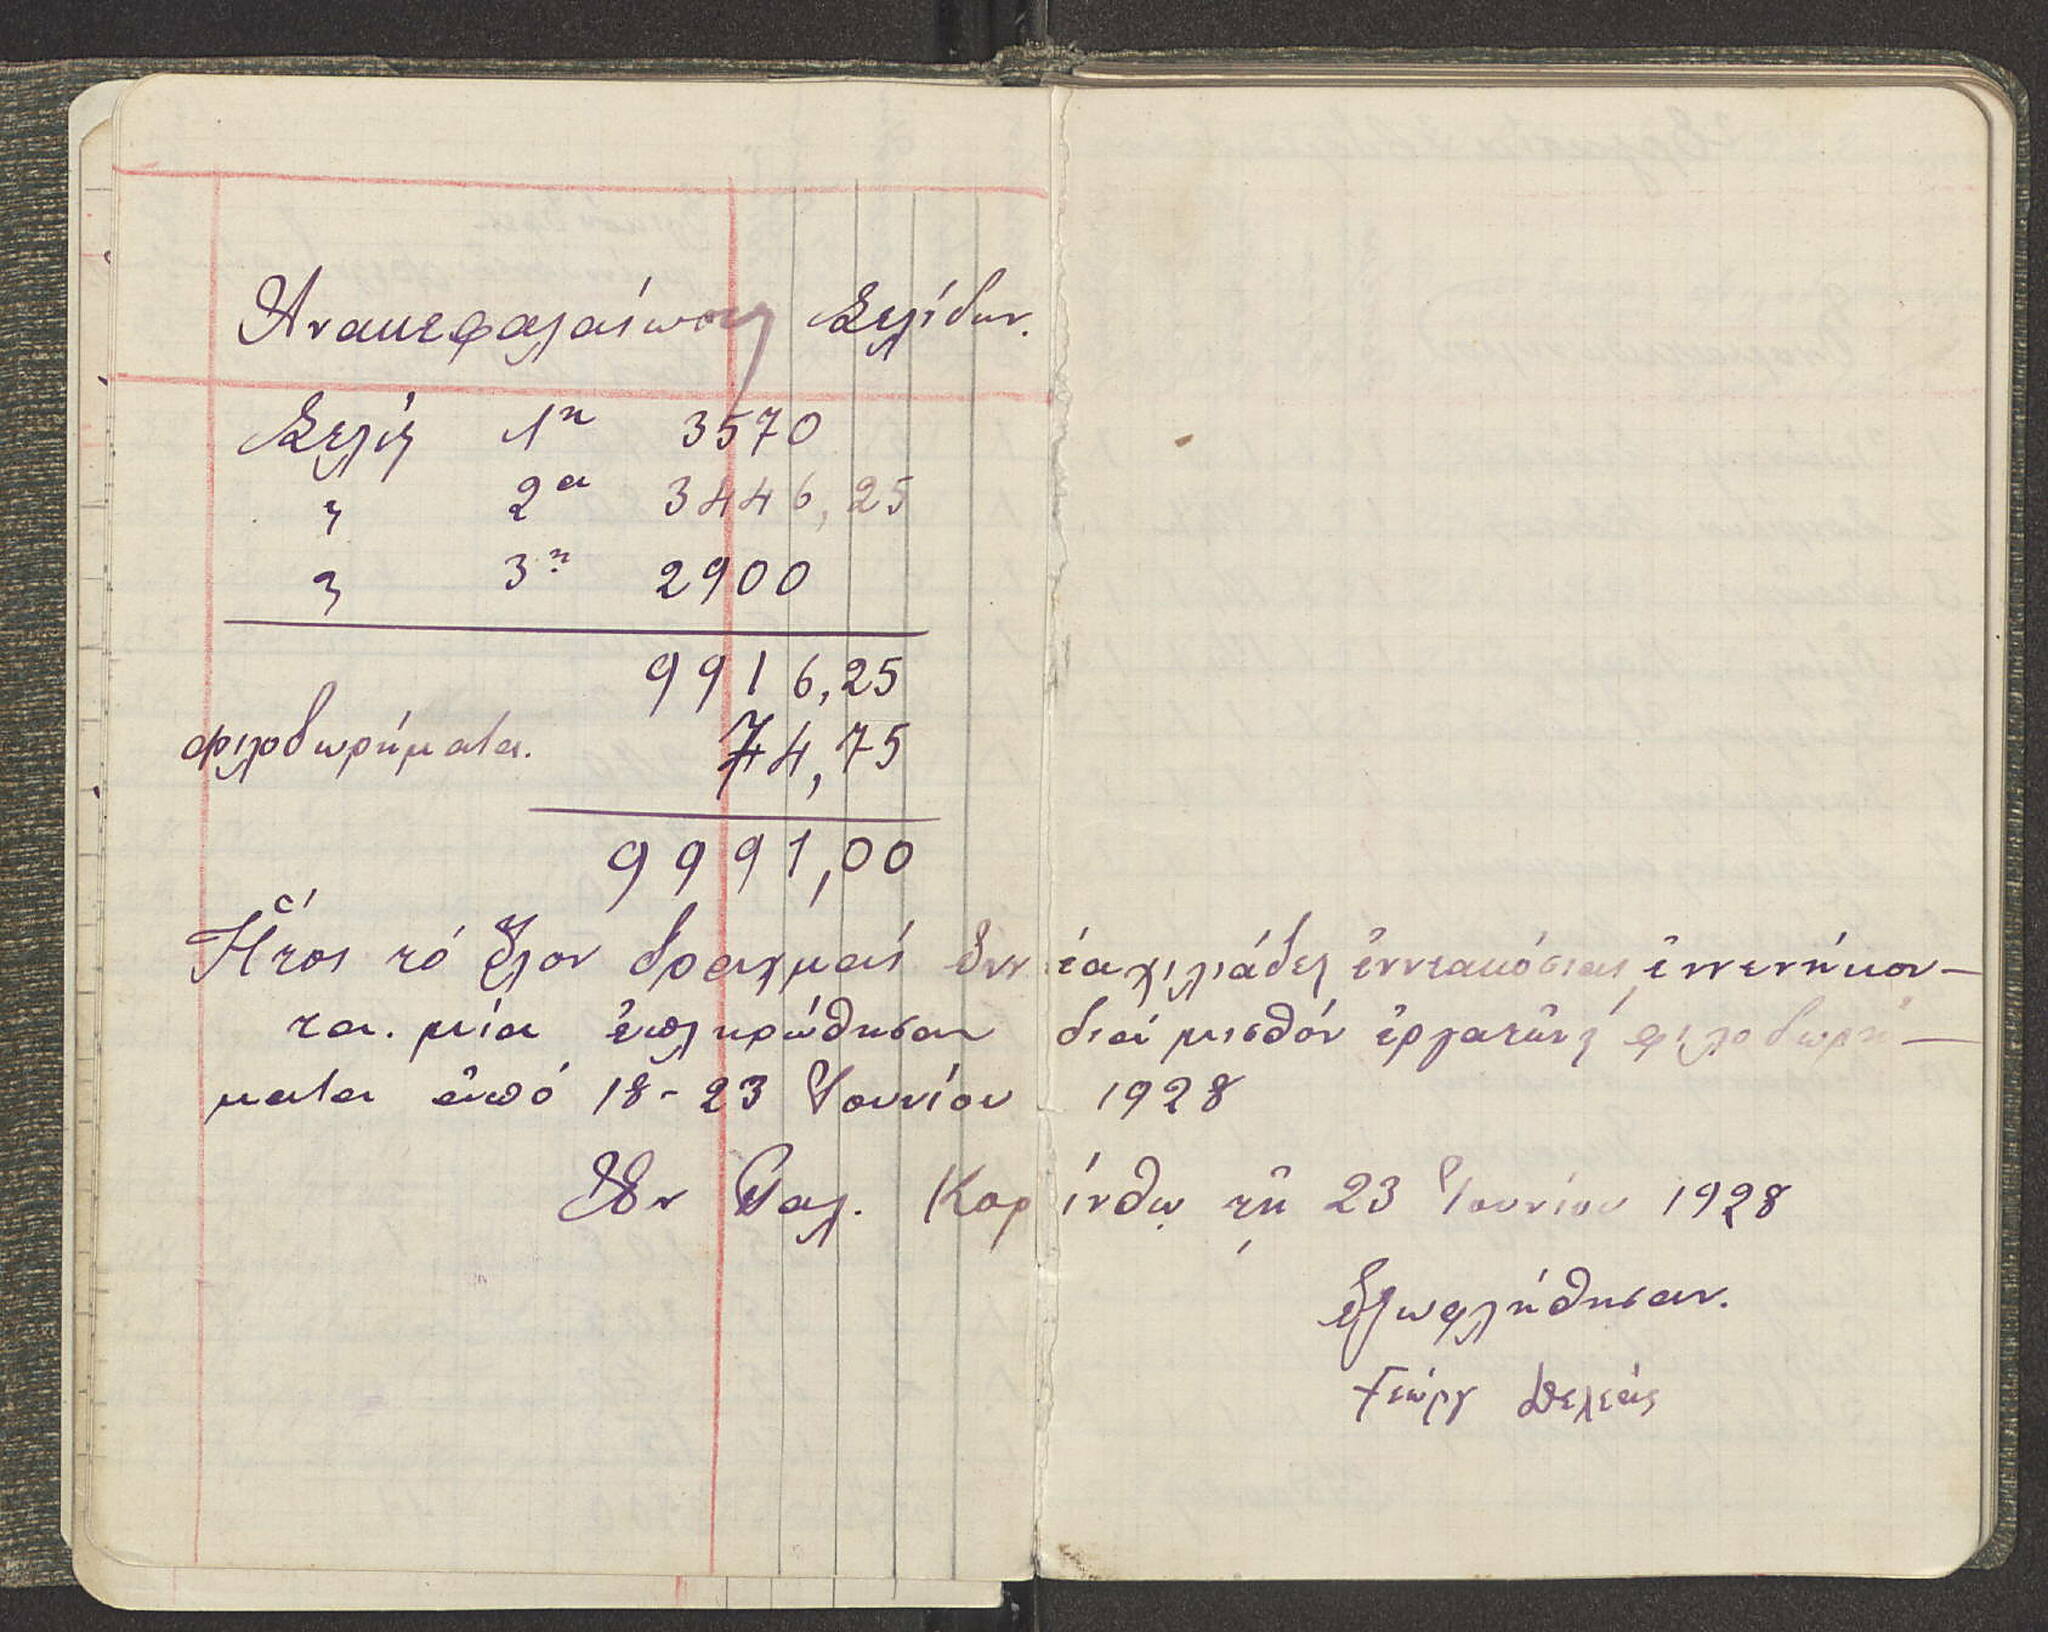 Ἀνακεφαλαίωσις Σελίδων.
Σελίς 1η 3570
〃 2α 3446,25
〃 3η 2900
9916,25
φιλοδωρήματα. 74,75
9991,00
Ἤτοι τό ὅλον δραχμαί ἐννέα χιλιάδες ἐννεακόσιαι ἐννενήκον—
τα. μία ἐπληρώθησαν διά μισθόν ἐργατῶν ϗ φιλοδωρή—
ματα ἀπό 18-23 Ἰουνίου 1928
Ἐν Παλ. Κορίνθῳ τῇ 23 Ἰουνίου 1928
ἐξωφλήθησαν.
Γεώργ